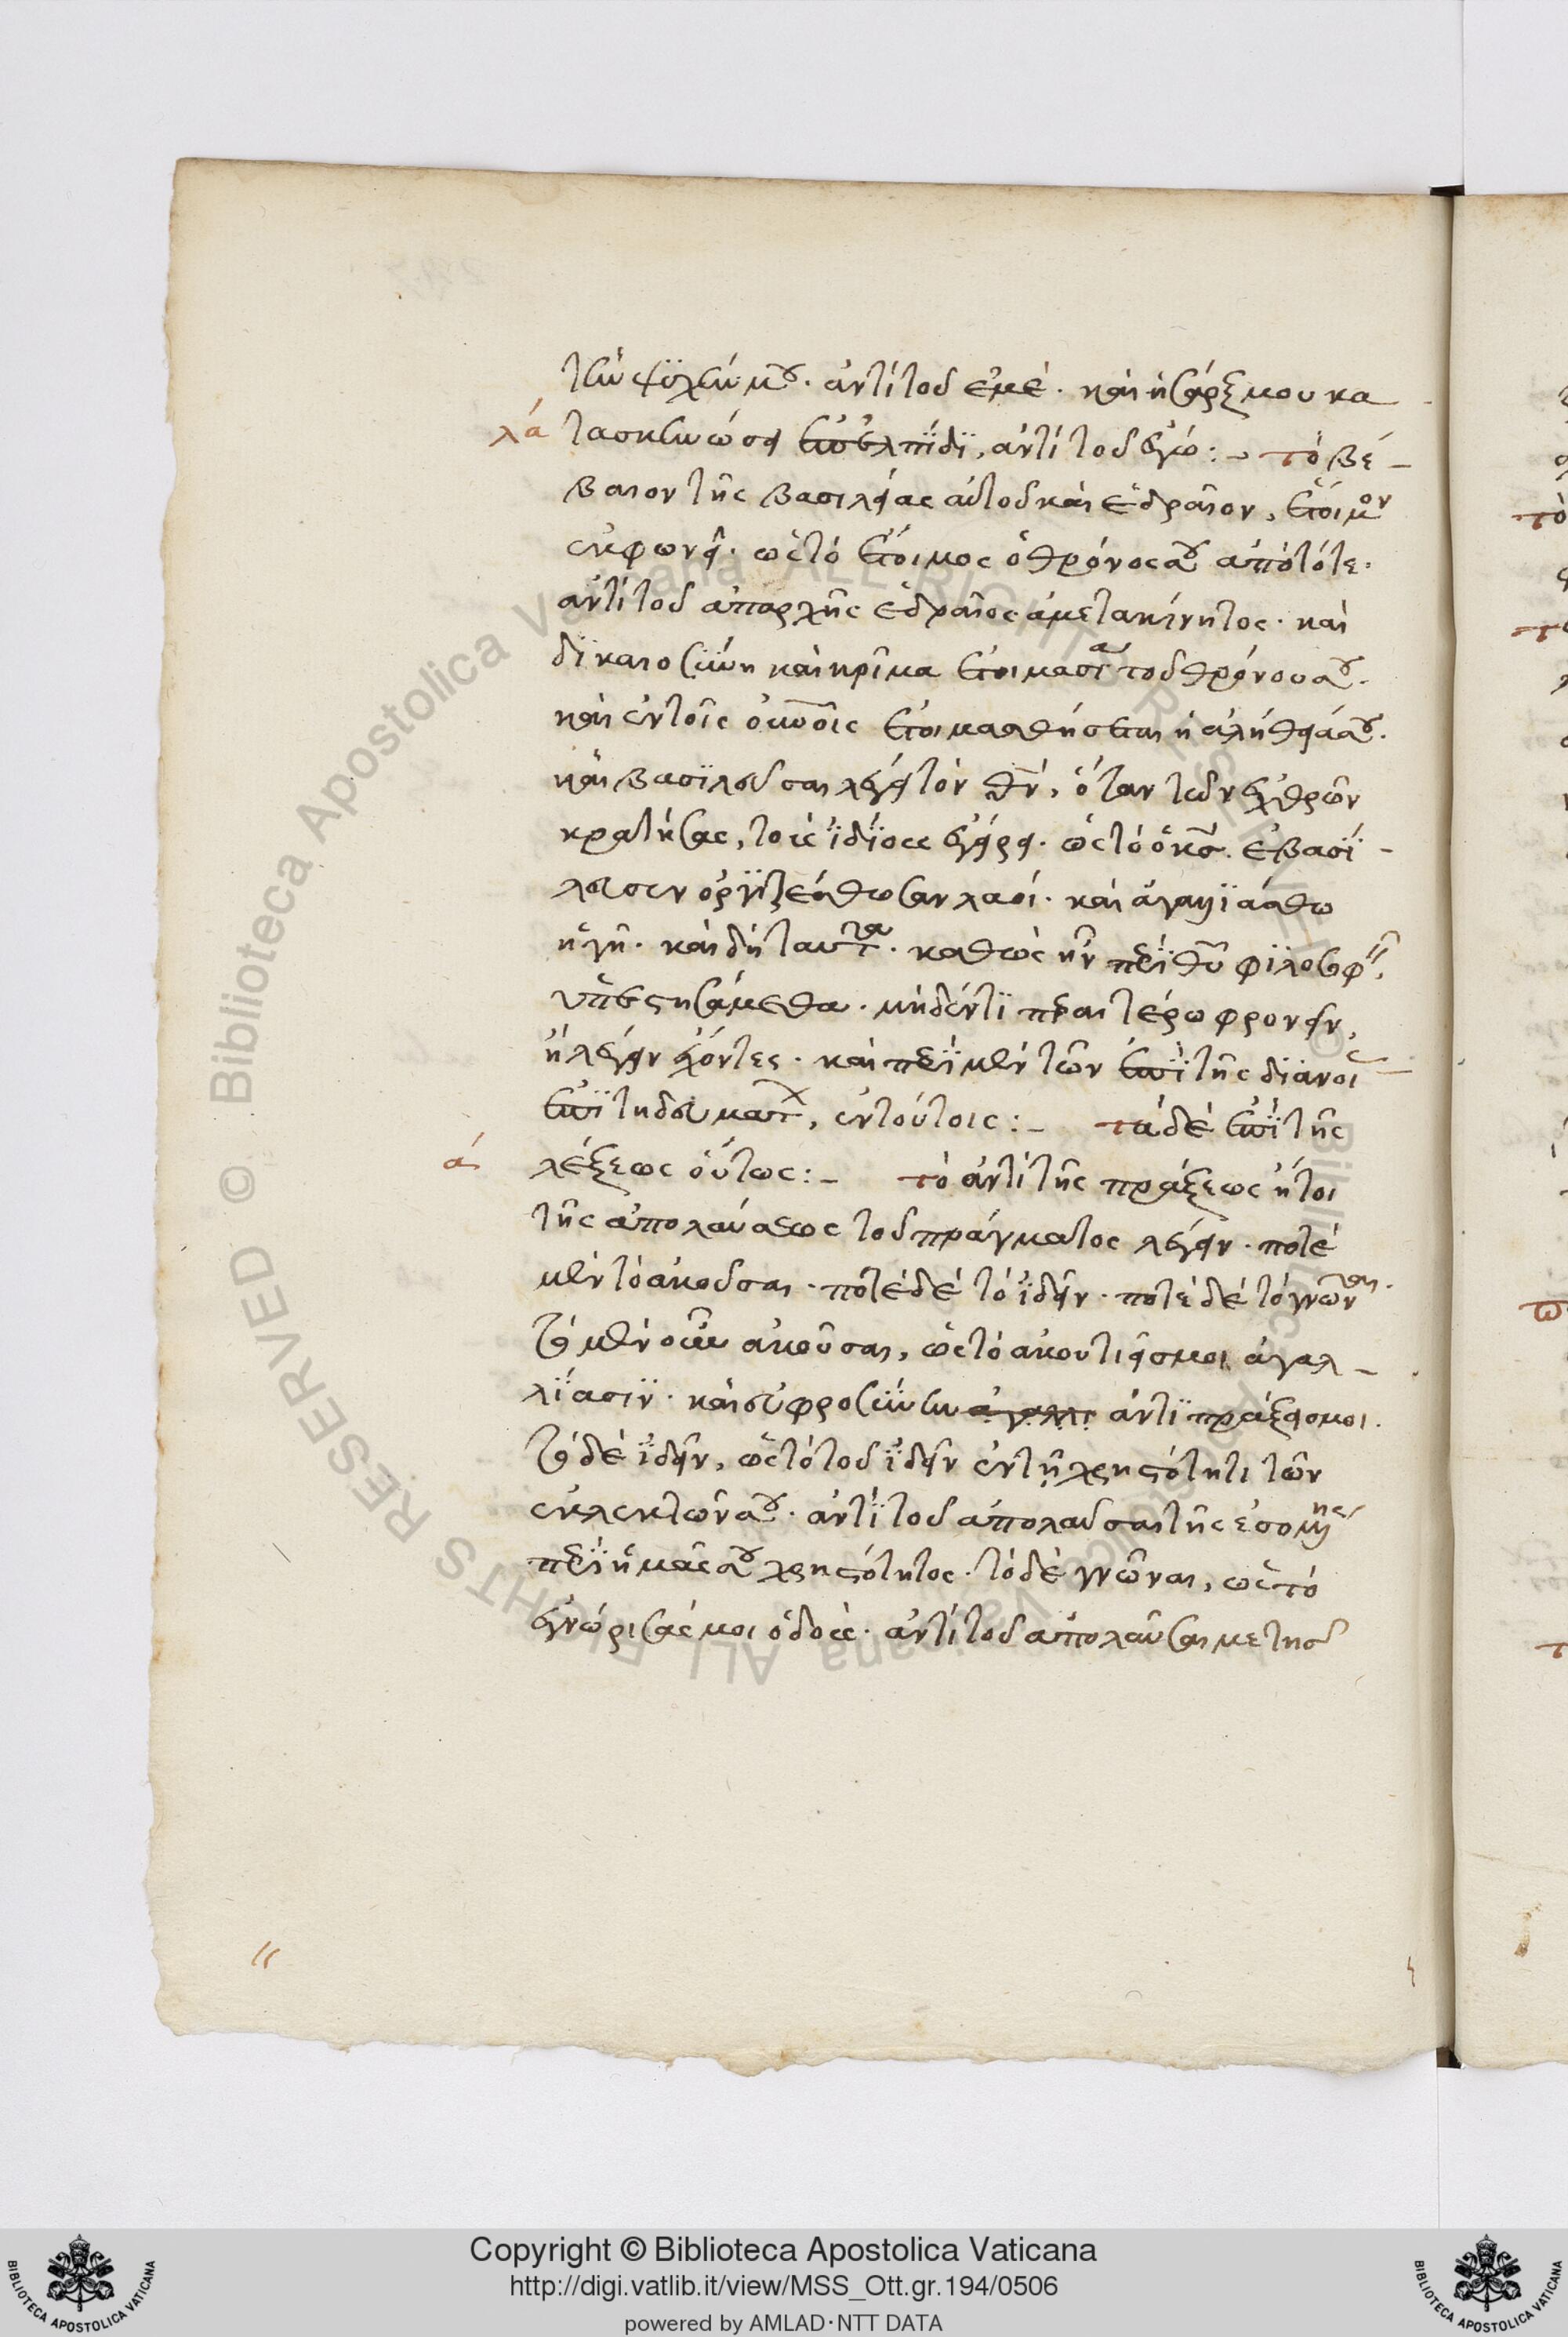 τὴν ψυχήν μου. ἀντὶ τοῦ ἐμέ. καὶ ἡ σάρξ μου κα
λα τασκηνώσει ἐπ' ἐλπίδι, ἀντὶ τοῦ ἐγώ:- τὸ βέ-
βαιον τῆς βασιλείας αὐτοῦ καὶ ἑδραῖον, ἕτοιμον
ἐκφωνεῖ. ὡς τὸ ἕτοιμος ὁ θρόνος σου ἀπὸ τότε.
ἀντὶ τοῦ ἀπαρχῆς ἑδραῖος ἀμετακίνητος. καὶ
δικαιοσύνη καὶ κρῖμα ἑτοιμασία τοῦ θρόνου σου.
καὶ ἐν τοῖς οὐνοῖς ἑτοιμασθήσεται ἡ ἀλήθειά σου.
καὶ βασιλεῦσαι λέγει τὸν θν, ὅταν τῶν ἐχθρῶν
κρατήσας, τοὺς ἰδίους ἐγείρει. ὡς τὸ ὁ κς ἐβασί-
λευσεν ὀργιζέσθωσαν λαοί. καὶ ἀγαλλιάσθω
ἡ γῆ. καὶ δὴ ταῦτα. καθὼς ἦν περὶ θυ φιλοσοφεῖν,
ὑπεστησάμεθα. μηδέν τι περαιτέρω φρονεῖν,
ἢ λέγειν ἔχοντες. καὶ περὶ μὲν τῶν ἐπὶ τῆς διανοί
ἐπιτηδευμάτ, ἐν τούτοις:- τὰ δὲ ἐπὶ τῆς
α λέξεως οὕτως:- τὸ ἀντὶ τῆς πράξεως ἤτοι
τῆς ἀπολαύσεως τοῦ πράγματος λέγειν. ποτὲ
μὲν τὸ ἀκοῦσαι. ποτὲ δὲ τὸ ἰδεῖν. ποτὲ δὲ τὸ γνῶναι.
τὸ μὲν οὖν ἀκοῦσαι, ὡς τὸ ἀκουτιεῖς μοι ἀγαλ-
λίασιν. καὶ εὐφροσύνην ἀγαλλι ἀντὶ πράξεις μοι.
τὸ δὲ ἰδεῖν, ὡς τὸ τοῦ ἰδεῖν ἐν τῇ χρηστότητι τῶν
ἐκλεκτῶν σου. ἀντὶ τοῦ ἀπολαῦσαι τῆς ἐσομένης
περὶ ἡμᾶς σου χρηστότητος. τὸ δὲ γνῶναι, ὡς τὸ
ἐγνώρισάς μοι ὁδούς. ἀντὶ τοῦ ἀπολαῦσαί με τησ
Copyright © Biblioteca Apostolica Vaticana
http://digi.vatlib.it/view/MSS_Ott.gr.194/0506
powered by AMLAD·NTT DATA